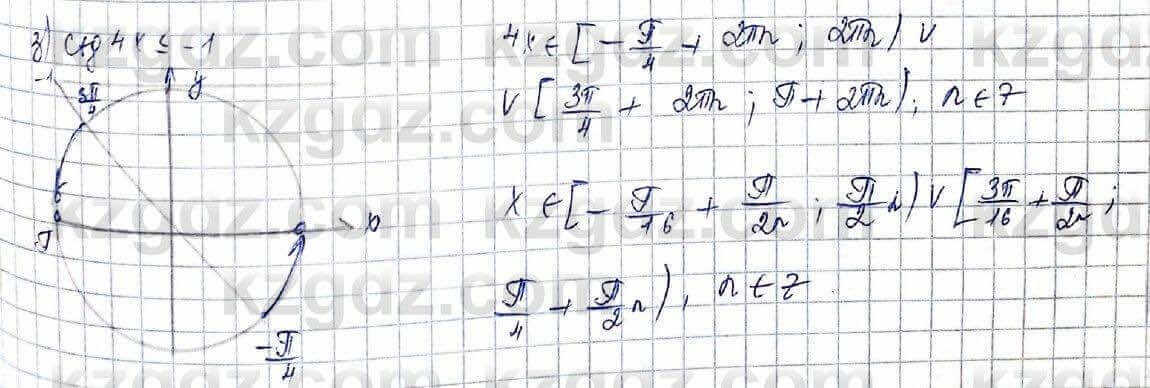 3) ctg 4x ≤ -1
-1
3π/4
y
π
0
-π/4
4x ∈ [-π/4 + 2πn; 2πn) ∨
∨ [3π/4 + 2πn; π + 2πn), n ∈ Z
x ∈ [-π/16 + π/2n; π/2 n) ∨ [3π/16 + π/2n;
π/4 + π/2 n), n ∈ Z
kzgdz.com